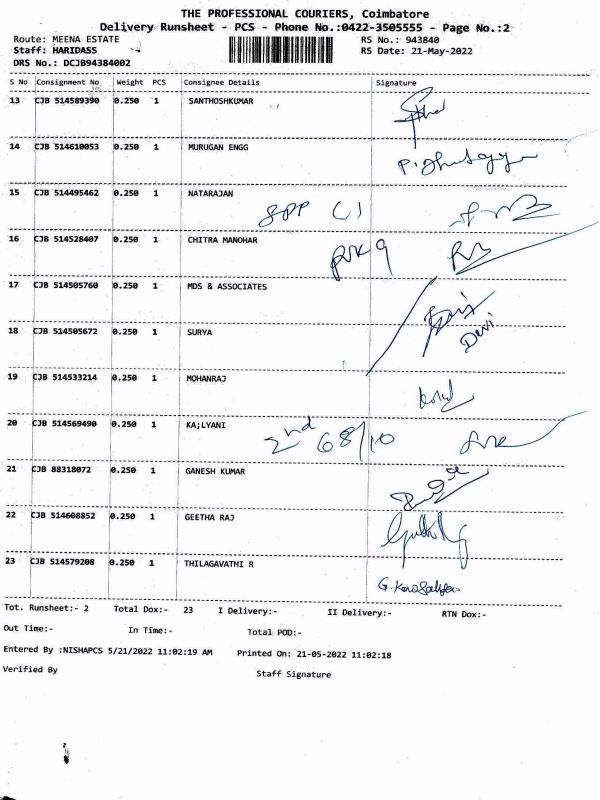 THE PROFESSIONAL COURIERS, Coimbatore
Delivery Runsheet - PCS - Phone No.:0422-3505555 - Page No.:2
Route: MEENA ESTATE RS No.: 943840
Staff: HARIDASS RS Date: 21-May-2022
DRS No.: DCJB94384002
S No Consignment No Weight PCS Consignee Details Signature
13 CJB 514589390 0.250 1 SANTHOSHKUMAR
14 CJB 514610053 0.250 1 MURUGAN ENGG
15 CJB 514495462 0.250 1 NATARAJAN
16 CJB 514528407 0.250 1 CHITRA MANOHAR
17 CJB 514505760 0.250 1 MDS & ASSOCIATES
18 CJB 514505672 0.250 1 SURYA
Devi
19 CJB 514533214 0.250 1 MOHANRAJ
20 CJB 514569490 0.250 1 KA;LYANI
2nd 68/10
21 CJB 88318072 0.250 1 GANESH KUMAR
22 CJB 514608852 0.250 1 GEETHA RAJ
23 CJB 514579208 0.250 1 THILAGAVATHI R
Tot. Runsheet:- 2 Total Dox:- 23 I Delivery:- II Delivery:- RTN Dox:-
Out Time:- In Time:- Total POD:-
Entered By :NISHAPCS 5/21/2022 11:02:19 AM Printed On: 21-05-2022 11:02:18
Verified By Staff Signature